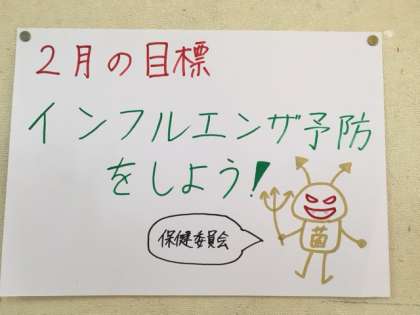 2月の目標
インフルエンザ予防
をしよう!
菌
保健委員会